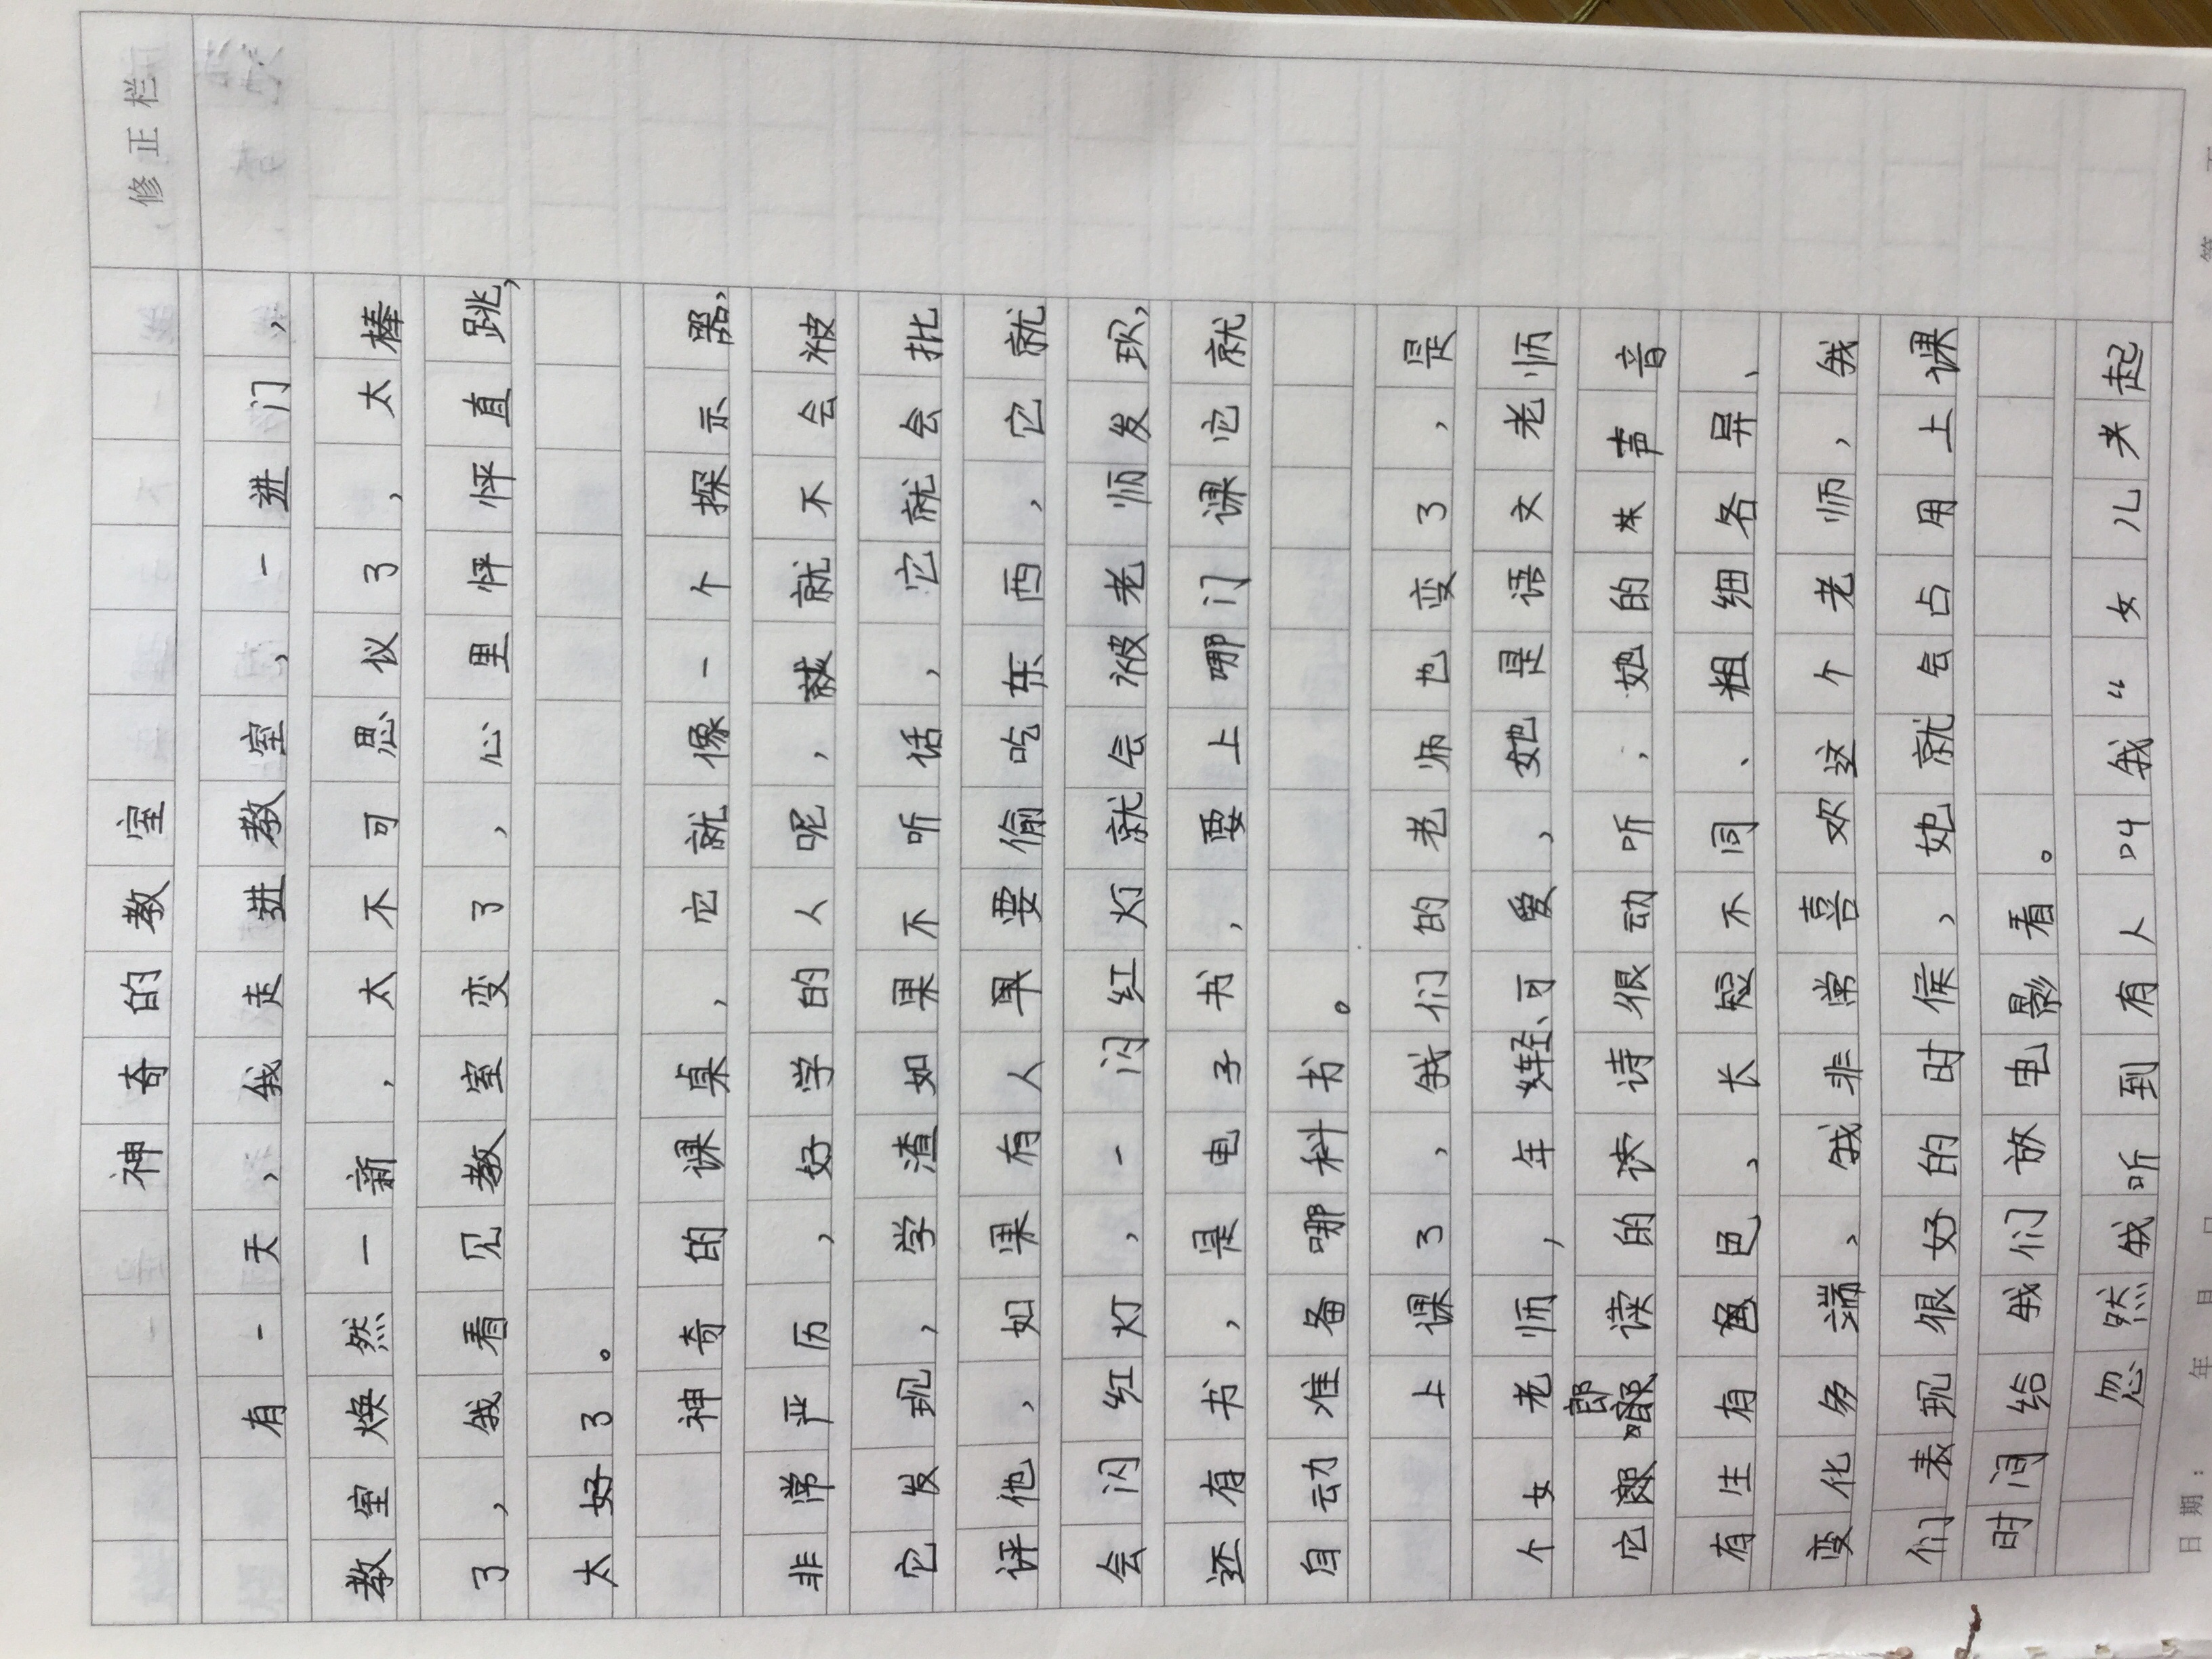 修正栏
神奇的教室
有一天，我走进教室，一进门，
教室焕然一新，太不可思仪了，太棒
了，我看见教室变了，心里怦怦直跳，
太好了。
神奇的课桌，它就像一个探示器，
非常严历，好学的人呢，就就不会被
它发现，学渣如果不听话，它就会批
评他，如果有人果要偷吃东西，它就
会闪红灯，一闪红灯就会被老师发现，
还有书，是电子书，要上哪门课它就
自动准备哪科书。
上课了，我们的老师也变了，是
个女老师，年轻、可爱，她是语文老师
它郎读的读诗很动听，她的声音
有生有色色，长短不同、粗细各异、
变化多端，我非常喜欢这个老师，我
们表现很好的时侯，她就会占用上课
时间给我们放电影看。
忽然我听到有人叫我“女儿来起
日期： 年 月 日 第 页